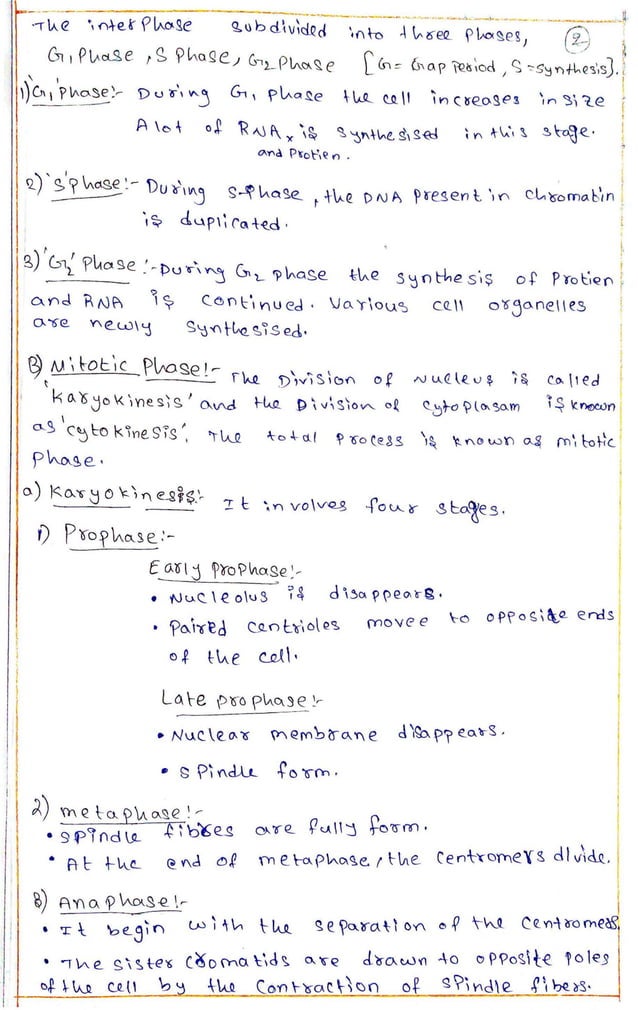 The interphase subdivided into three phases,
2
G1 Phase, S Phase, G2 Phase [G = Gap Period, S = synthesis].
1) 'G1' Phase:- During G1 phase the cell increases in size
A lot of RNA x is synthesised in this stage.
and Protien.
2) 'S' Phase:- During S-Phase, the DNA Present in chromatin
is duplicated.
3) 'G2' Phase:- During G2 phase the synthesis of Protien
and RNA is continued. Various cell organelles
are newly synthesised.
B) Mitotic Phase:- The Division of Nucleus is called
'Karyokinesis' and the Division of Cytoplasam is known
as 'cytokinesis'. The total process is known as mitotic
Phase.
a) Karyokinesis:- It involves four stages.
1) Prophase:-
Early Prophase:-
• Nucleolus is disappears.
• Paired centrioles movee to opposite ends
of the cell.
Late prophase:-
• Nuclear membrane disappears.
• Spindle form.
2) metaphase:-
• Spindle fibres are fully form.
• At the end of metaphase, the centromers divide.
3) Anaphase:-
• It begin with the separation of the centromers.
• The sister cromatids are drawn to opposite poles
of the cell by the contraction of spindle fibers.